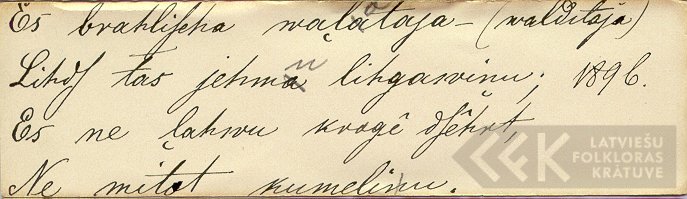 Es brahliſcha waļātaja – (walditaja)
Lihdſ tas jehmu lihgawiņu; 1896.
Es ne ļahwu krogê dſehrt,
Ne mitot kumeliņu.
LATVIEŠU
FOLKLORAS
KRĀTUVE